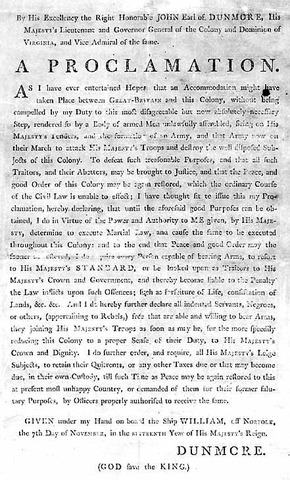 By His Excellency the Right Honorable JOHN Earl of DUNMORE, His
MAJESTY's Lieutenant and Governor General of the Colony and Dominion of
VIRGINIA, and Vice Admiral of the same.
A PROCLAMATION.
AS I have ever entertained Hopes that an Accommodation might have
taken Place between GREAT-BRITAIN and this Colony, without being
compelled by my Duty to this most disagreeable but now absolutely necessary
Step, rendered so by a Body of armed Men unlawfully assembled, firing on His
MAJESTY's Tenders, and the formation of an Army, and that Army now on
their March to attack His MAJESTY's Troops and destroy the well disposed Sub-
jects of this Colony. To defeat such treasonable Purposes, and that all such
Traitors, and their Abettors, may be brought to Justice, and that the Peace, and
good Order of this Colony may be again restored, which the ordinary Course
of the Civil Law is unable to effect; I have thought fit to issue this my Pro-
clamation, hereby declaring, that until the aforesaid good Purposes can be ob-
tained, I do in Virtue of the Power and Authority to ME given, by His MAJE-
STY, determine to execute Martial Law, and cause the same to be executed
throughout this Colony: and to the end that Peace and good Order may the
sooner be restored, I do require every Person capable of bearing Arms, to resort
to His MAJESTY's STANDARD, or be looked upon as Traitors to His
MAJESTY's Crown and Government, and thereby become liable to the Penalty
the Law inflicts upon such Offences; such as Forfeiture of Life, confiscation of
Lands, &c. &c. And I do hereby further declare all indented Servants, Negroes,
or others, (appertaining to Rebels,) free that are able and willing to bear Arms,
they joining His MAJESTY's Troops as soon as may be, for the more speedily
reducing this Colony to a proper Sense of their Duty, to His MAJESTY's
Crown and Dignity. I do further order, and require, all His MAJESTY's Leige
Subjects, to retain their Quitrents, or any other Taxes due or that may become
due, in their own Custody, till such Time as Peace may be again restored to this
at present most unhappy Country, or demanded of them for their former salu-
tary Purposes, by Officers properly authorised to receive the same.
GIVEN under my Hand on board the Ship WILLIAM, off NORFOLK,
the 7th Day of NOVEMBER, in the SIXTEENTH Year of His MAJESTY's Reign.
DUNMORE.
(GOD save the KING.)